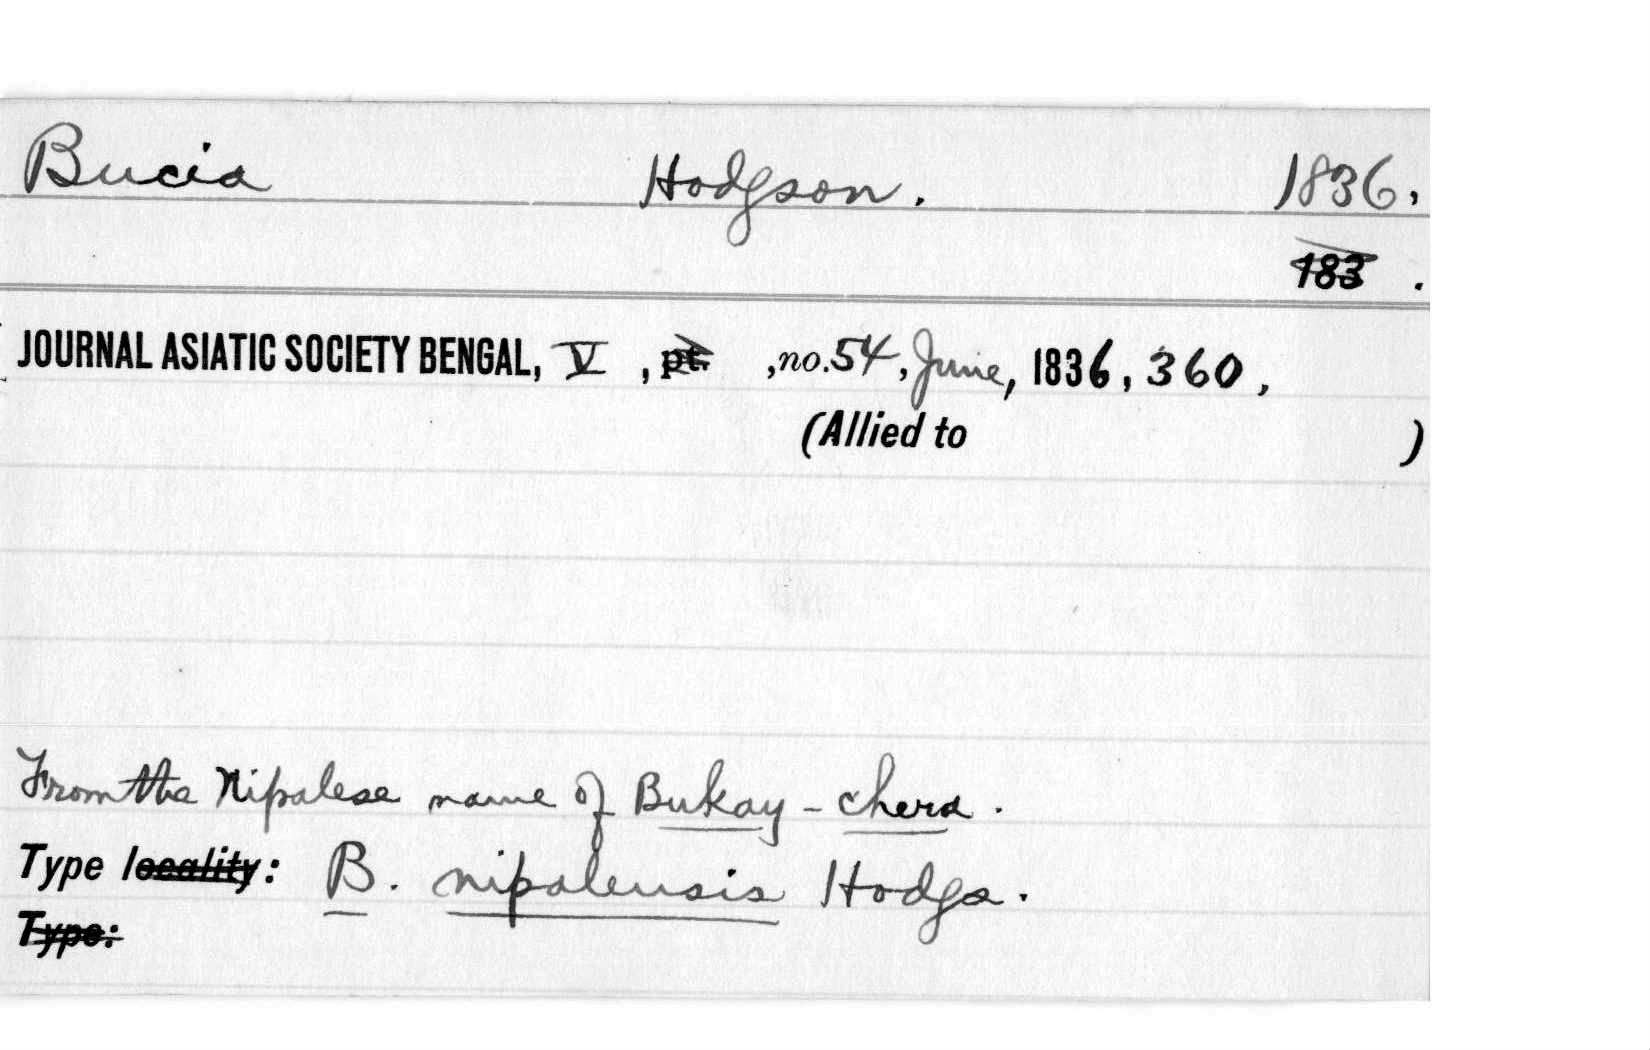 Bucia Hodgson. 1836.
183 .
JOURNAL ASIATIC SOCIETY BENGAL, V , pt. ,no.54, June, 1836, 360,
(Allied to )
From the Nipalese name of Bukay-chera.
Type locality: B. nipalensis Hodgs.
Type: